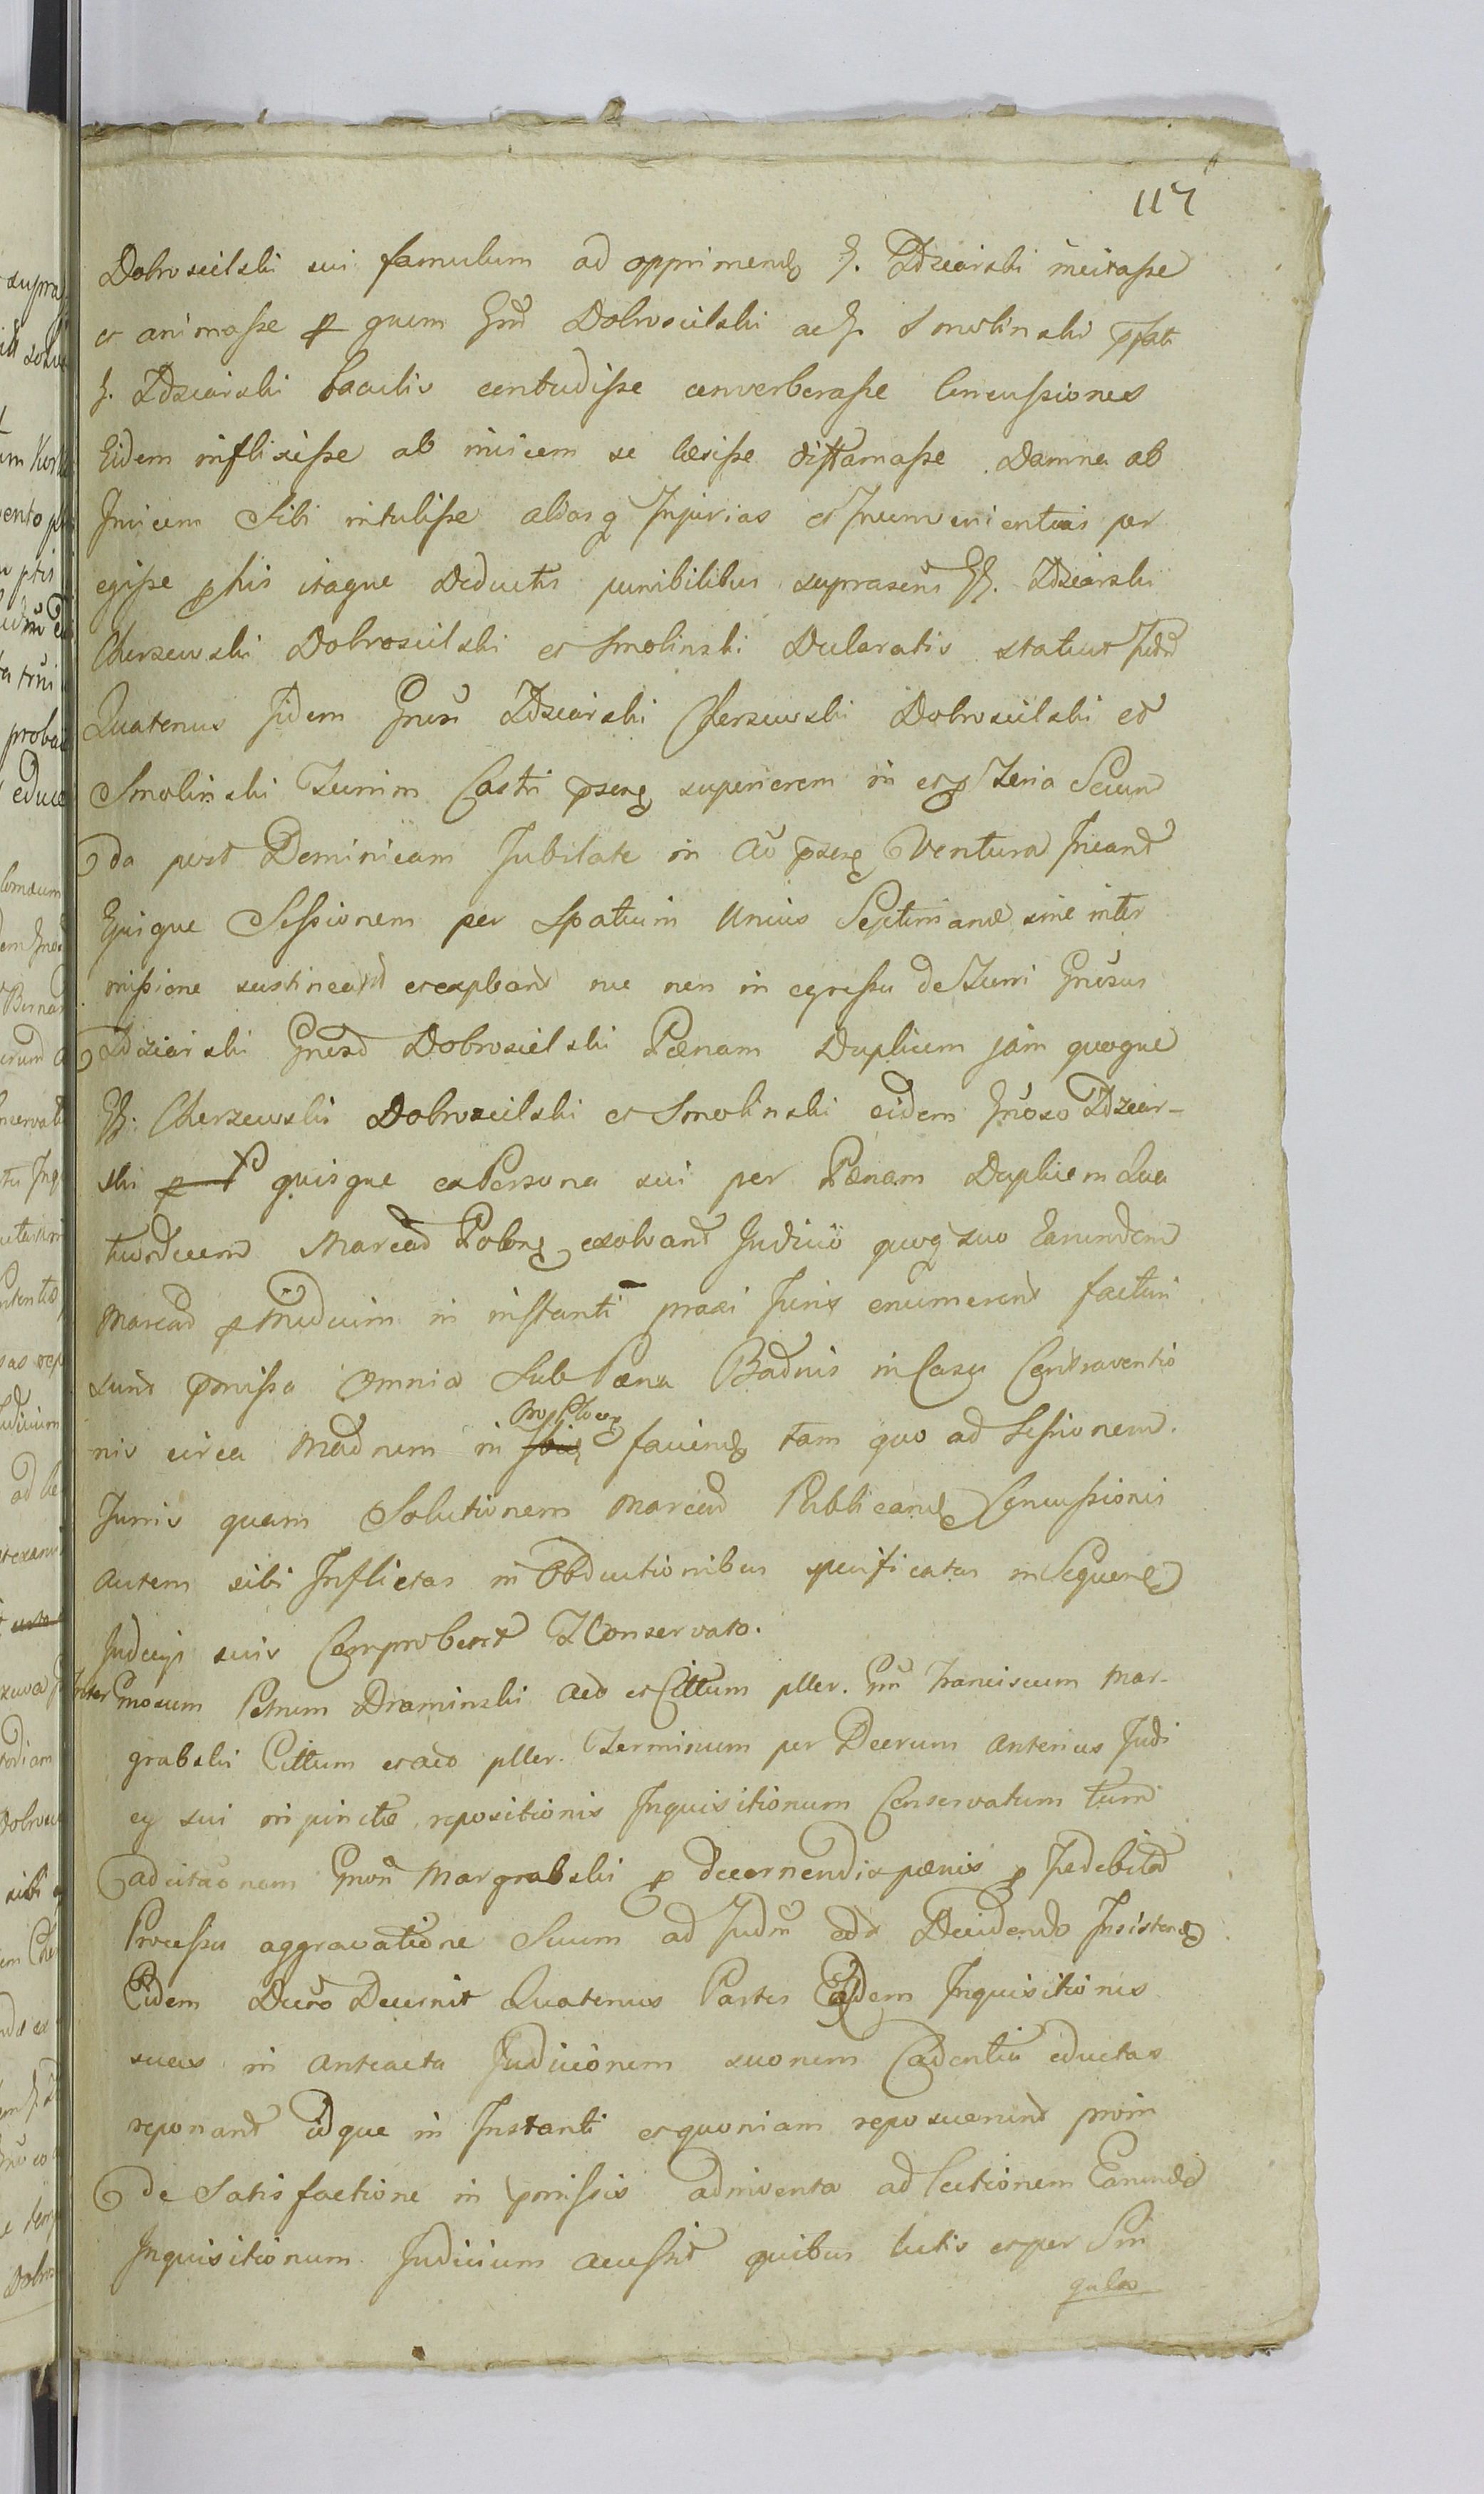 117
Dobrosielski sui famulum ad opprimend G. Zdziarski incitasse
et animasse p quem Gnd Dobrosielski ac G. Smolinski pfati
G. Zdziarski baculis contudisse converberasse Concussiones
Eidem inflixisse ab invicem se læsisse diffamasse Damna ab
Invicem Sibi intulisse aliasq Injurias et Inconvenientias per
egisse phis itaque Deductis punibilibus suprascris GG. Zdziarski
Cherzewski Dobrosielski et Smolinski Declaratis statuit Judm
Quatenus Iidem Gnosi Zdziarski Cherzewski Dobrosielski et
Smolinski Turrim Castri psenq superiorem in et p Feria Secun
da post Dominicam Jubilate in Ao psenq Ventura Ineant
Ejusque Sessionem per Spatium Unius Septimanæ sine inter
missione sustineant et expleant nec non in egressu de Turri Gnosus
Zdziarski Gnoso Dobrosielski Pænam Duplicem jam quoque
GG. Cherzewski Dobrosielski et Smolinski eidem Gnoso Zdziar-
ski quisque ex Persona sui per Pænam Duplicem Qua
tuordecem Marcar Polonq exolvant Judicio quoq suo Earundem
Marcar p Tridecim in instanti praxi Juris enumerent facturi
sunt pmissa Omnia Sub Pæna Badnis in Casu Contraventio
nis circa Madnum in faciend tam quo ad Sessionem
Turris quam Solutionem Marcar Publicand Concussionis
autem sibi Inflictas in Obductionibus specificatas in Sequend
Judicijs suis Comprobent T Conservato.
Inter Gnosum Petrum Draminski Aeo et Cittum pller. Gnm Franciscum Mar-
grabski Cittum et aeo pller. Terminum per Decrum Anterius Judi
cij sui in puncto repositionis Inquisitionum Conservatum tum
ad citaonem Gnosi Margrabski p decernendis pænis p Indebita
Processu aggravatione Suum ad Judm Decidendo Insistend
Eidem Decro Decernit Quatenus Partes Eædem Inquisitiones
suas in anteacta Judiciorum suorum Cadentia eductas
reponant idque in Instanti et quoniam reposuerunt proin
de Satisfactione in pmissis adinventa ad lectionem Earund
Inquisitionum Judicium accessit quibus lectis et per Sin
gula